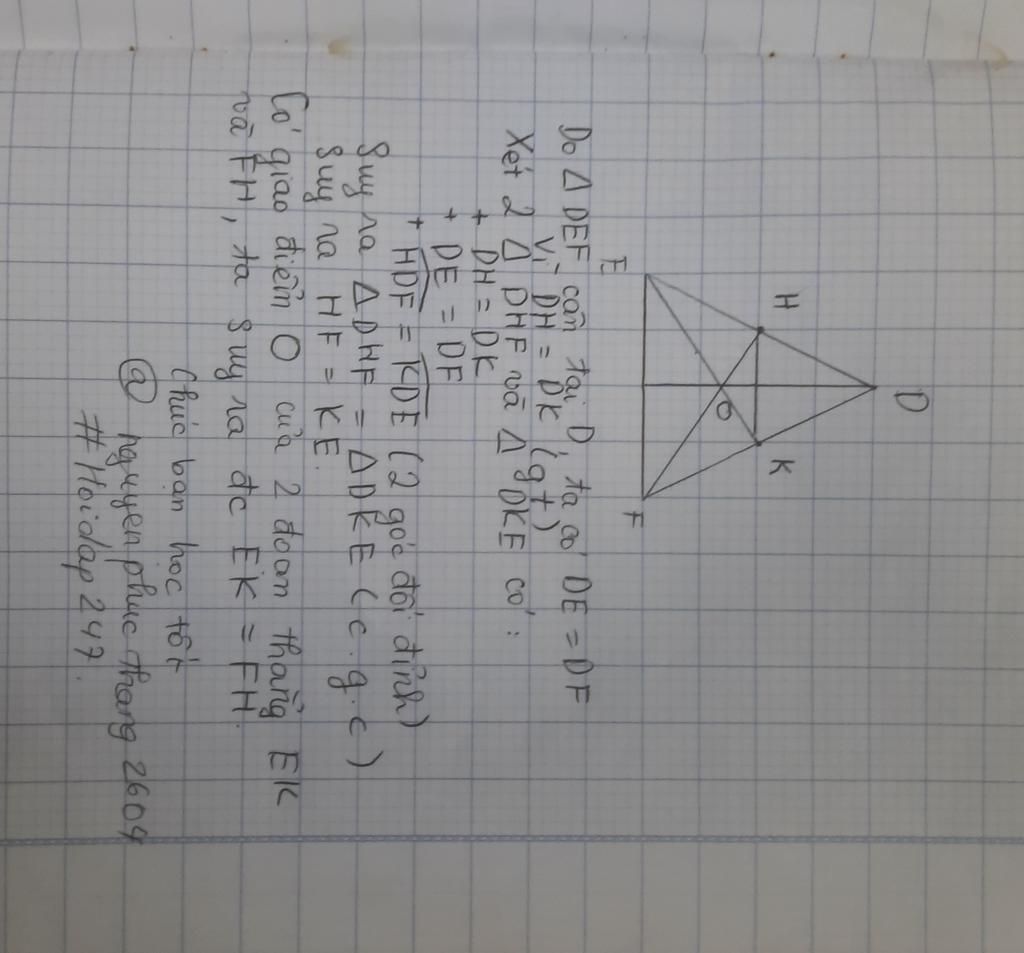 D
H
K
O
E
F
Do Δ DEF cân tại D, ta có DE = DF
Vì DH = DK (gt)
Xét 2 Δ DHF và Δ DKE có :
+ DH = DK
+ DE = DF
+ HDF = KDE (2 góc đối đỉnh)
Suy ra Δ DHF = Δ DKE (c.g.c)
Suy ra HF = KE.
Có giao điểm O của 2 đoạn thẳng EK
và FH, ta suy ra đc EK = FH.
Chúc bạn học tốt
@ nguyenphucthang2609
#Hoidap247.